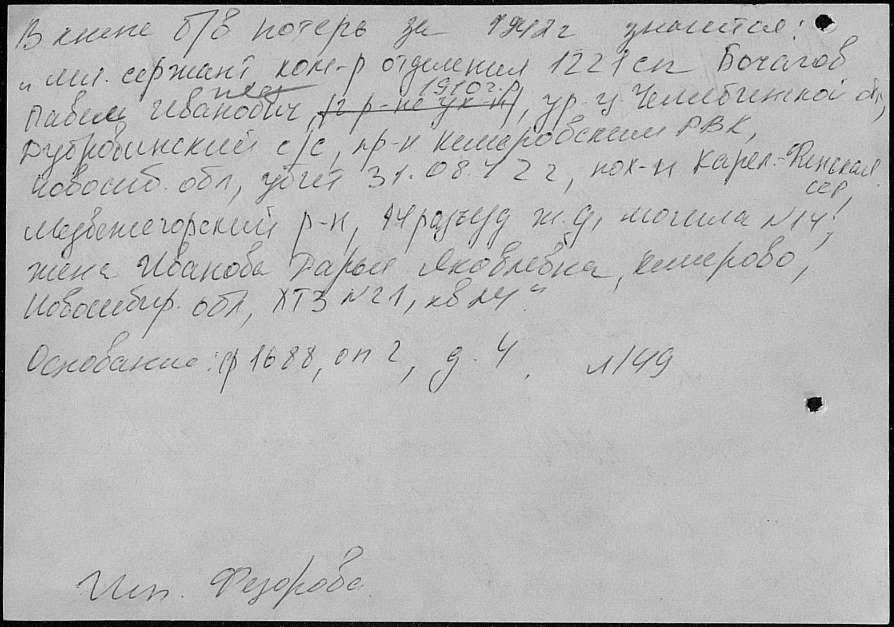 В книге б/в потерь за 1942г значится:
"мл. сержант ком-р отделения 1221 сп Бочагов
1910г.р
Павел Иванович, (г р-не ук-н), ур-ц Челябинской обл,
Дубровинский с/с, пр-н Кемеровским РВК,
Новосиб. обл, убит 31.08.42г, пох-н Карел.-Финская
ССР,
Медвежегорский р-н, 14 разъезд ж.д, могила №14,
жена Иванова Дарья Яковлевна, Кемерово,
Новосибир. обл, ХТЗ №21, кв №4."
Основание: ф 1688, оп 2, д. 4, л 149
Исп. Федорова